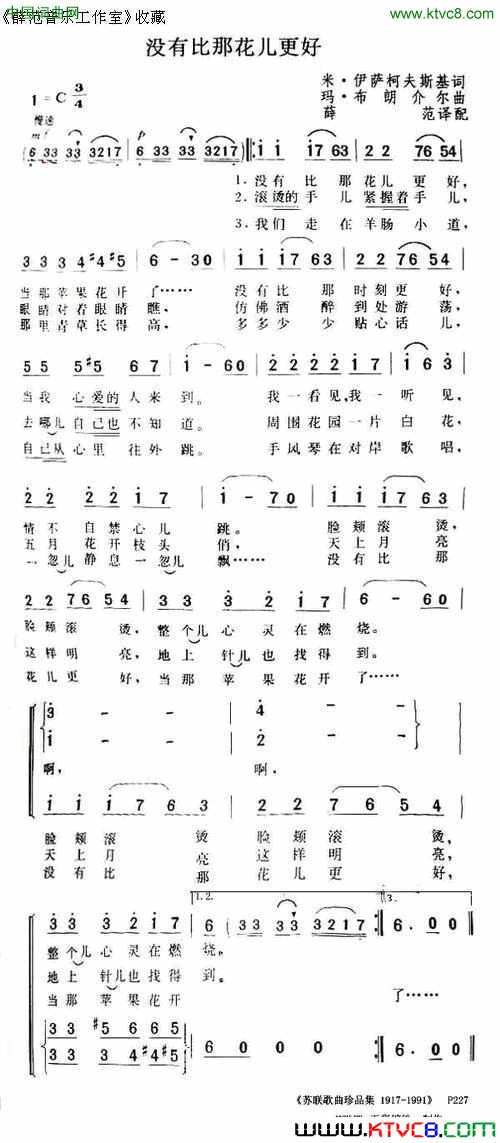 中国词曲网
《薛范音乐工作室》收藏
www.ktvc8.com
没有比那花儿更好
米·伊萨柯夫斯基词
玛·布朗介尔曲
薛 范译配
1=C 3/4
慢速
mf p
(6 33 33 3217 | 6 33 33 3217) 𝄆 i i i7 63 | 2 2 76 54 |
1.没有比那花儿更好,
2.滚烫的手儿紧握着手儿,
3.我们走在羊肠小道,
3 3 3 4 #4 #5 | 6 - 3 0 | i i i7 63 | 2 2 76 54 |
当那苹果花开了…… 没有比那时刻更好,
眼睛对着眼睛瞧, 仿佛酒醉到处游荡,
那里青草长得高, 多多少少贴心话儿,
5 5 5 #5 6 7 | i - 6 0 | 2 2 2 i 7 | i 6 3 |
当我心爱的人来到。 我一看见,我一听见,
去哪儿自己也不知道。 周围花园一片白花,
自己从心里往外跳。 手风琴在对岸歌唱,
2 2 2 2 i 7 | i - 7 0 | i i i 7 6 3 |
情不自禁心儿跳。 脸颊滚烫,
五月花开枝头俏, 天上月亮
一忽儿静息一忽儿飘…… 没有比那
2 2 7 6 5 4 | 3 3 3 2 i 7 | 6 - 6 0 |
脸颊滚烫,整个儿心灵在燃烧。
这样明亮,地上针儿也找得到。
花儿更好,当那苹果花开了……
3 - - | 4 - - |
i - - | 2 - - |
啊, 啊,
i i i 7 6 3 | 2 2 7 6 5 4 |
脸颊滚烫 脸颊滚烫,
天上月亮 这样明亮,
没有比那 花儿更好,
1.2. 3.
3 3 3 2 i 7 | 6 33 33 3217 𝄇 6. 0 0 𝄇
整个儿心灵在燃烧。
地上针儿也找得到。
当那苹果花开 了……
3 3 #5 6 6 5 | 6 0 0 0 𝄇 6. 0 0
3 3 #4 4 3 3
《苏联歌曲珍品集 1917-1991》 P227
www.KTVC8.com